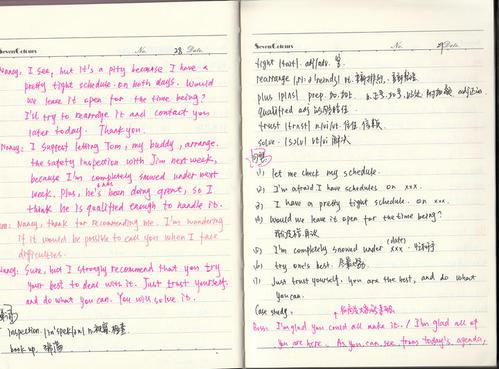 SevenColours No. 28 Date
Nancy: I see, but it's a pity because I have a
pretty tight schedule on both days. Would
we leave it open for the time being?
I'll try to rearrange it and contact you
later today. Thank you.
Nancy: I suggest letting Tom, my buddy, arrange
the safety inspection with Jim next week,
because I'm completely snowed under next
week. Plus, he's been doing great, so I
think he is qualified enough to handle it.
Nancy, thank for recommending me. I'm wondering
if it would be possible to call you when I face
difficulties.
Nancy: Sure, but I strongly recommend that you try
your best to deal with it. Just trust yourself
and do what you can. You will solve it.
inspection n. 检查
book up.
SevenColours No. 29 Date
tight [taɪt]. adj/adv. 紧
rearrange vt. 重新排列.
plus [plʌs] prep. 加, 加上 n.
qualified adj
trust [trʌst] n/vi/vt. 信任 信赖
solve. [sɔlv] vt/vi 解决
(1) let me check my schedule.
(2) I'm afraid I have schedules on xxx.
(3) I have a pretty tight schedule on xxx.
(4) Would we leave it open for the time being?
(5) I'm completely snowed under xxx. (date)
(6) try one's best. 尽最
(7) Just trust yourself. you are the best, and do what
you can.
Case study.
Boss: I'm glad you could all make it. / I'm glad all of
you are here. As you can see from today's agenda,